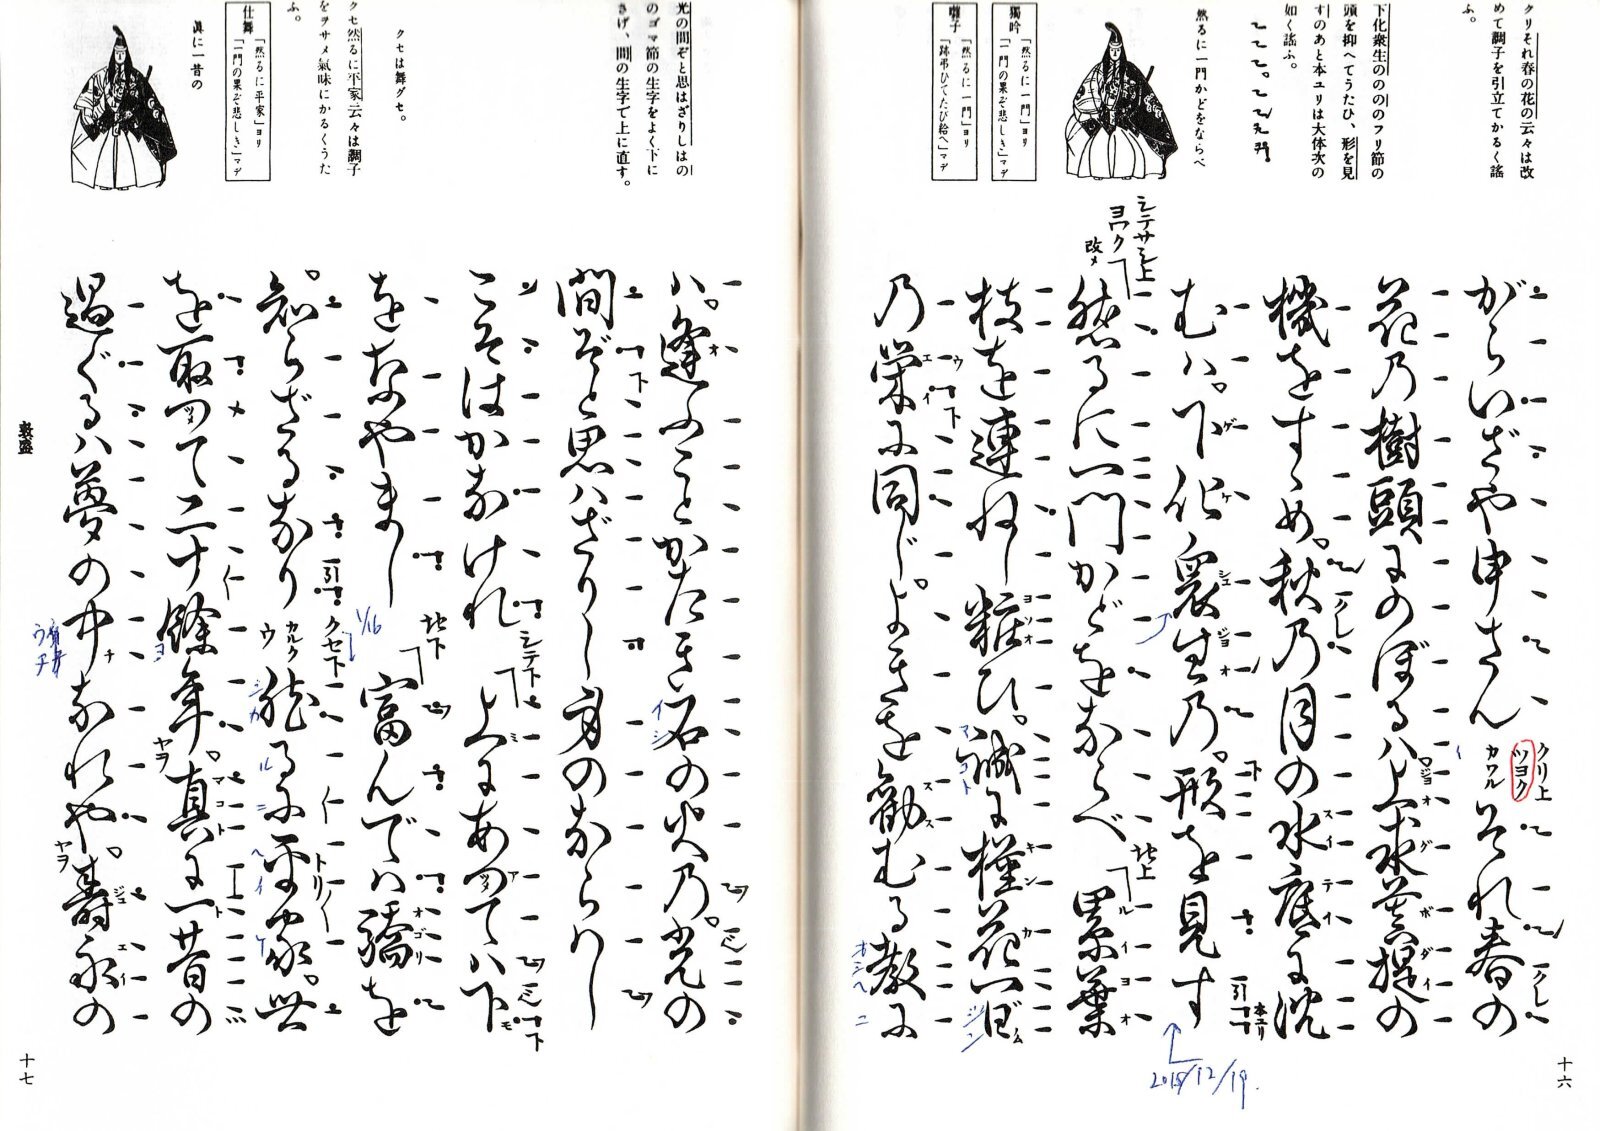 クリそれ春の花の云々は改
めて調子を引立てかるく謠
ふ。
下化衆生ののののフリ節の
頭を抑へてうたひ、形を見
すのあと本ユリは大体次の
如く謠ふ。
然るに一門かどをならべ
獨吟
「然るに一門」ヨリ
「一門の果ぞ悲しき」マデ
囃子
「然るに一門」ヨリ
「跡弔ひてたび給へ」マデ
がらいざや申さん
クリ上
ツヨク
カワル
それ春の
花乃樹頭にのぼるハ上求菩提の
機をすゝめ。秋乃月の水底に沈
むハ。下化衆生乃。形を見す
本ユリ
2018/12/19.
シテサシ上
ヨワク
改メ
然るに一門かどをならべ
地上
累葉
枝を連ねし粧ひ。誠に槿花一日
乃栄に同じ。よきを勧むる教に
十六
光の間ぞと思はざりしはの
のゴマ節の生字をよく下に
さげ、間の生字で上に直す。
クセは舞グセ。
クセ然るに平家云々は調子
をヲサメ氣味にかるくうた
ふ。
仕舞
「然るに平家」ヨリ
「一門の果ぞ悲しき」マデ
眞に一昔の
ハ。逢ふことかたき石の火乃。光の
間ぞと思ハざりし身のならハし
こそはかなけれ
シテ下
上にあつてハ下
をなやまし
1/16
地下
富んでハ驕を
知らざるなり
クセ下
カルク
ウ
然るに平家。世
を取つて二十餘年。真に一昔の
過ぐるハ夢の中なれや。壽永の
敦盛
十七